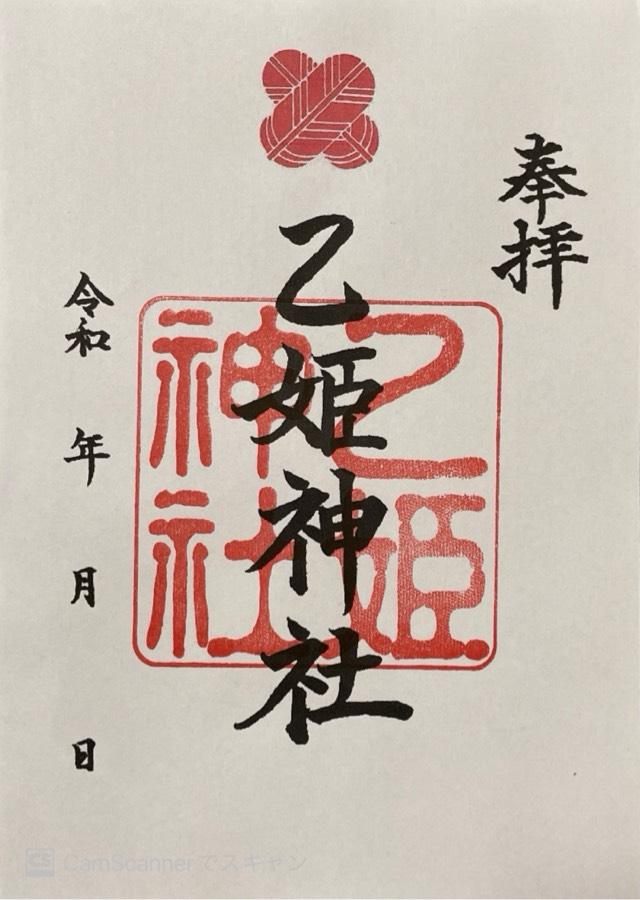 奉拝
乙姫神社
乙姫
神社
令和 年 月 日
CS CamScannerでスキャン